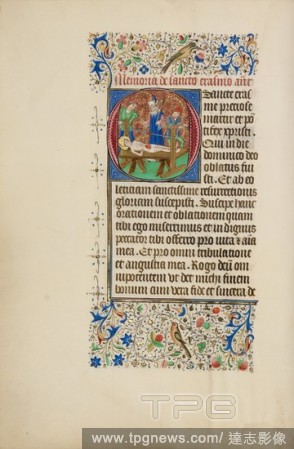 Memoria de sancto erasmo ante
Sancte eras
me preciose
martir et po
tifex xpristi.
Qui in die
dominico deo
oblatus fui
sti. Et ab eo
leticiam sanctissime resurrectionis
gloriam suscepisti. Suscipe hanc
orationem et oblationem quam
tibi ego miserrimus et in dignus
peccator tibi offero pro vita & aia
mea. Et pro omni tribulatione
et angustia mea. Rogo deum om
nipotentem ut det michi finem
bonum cum vera fide et sincera de
TPG
www.tpgnews.com / 達志影像